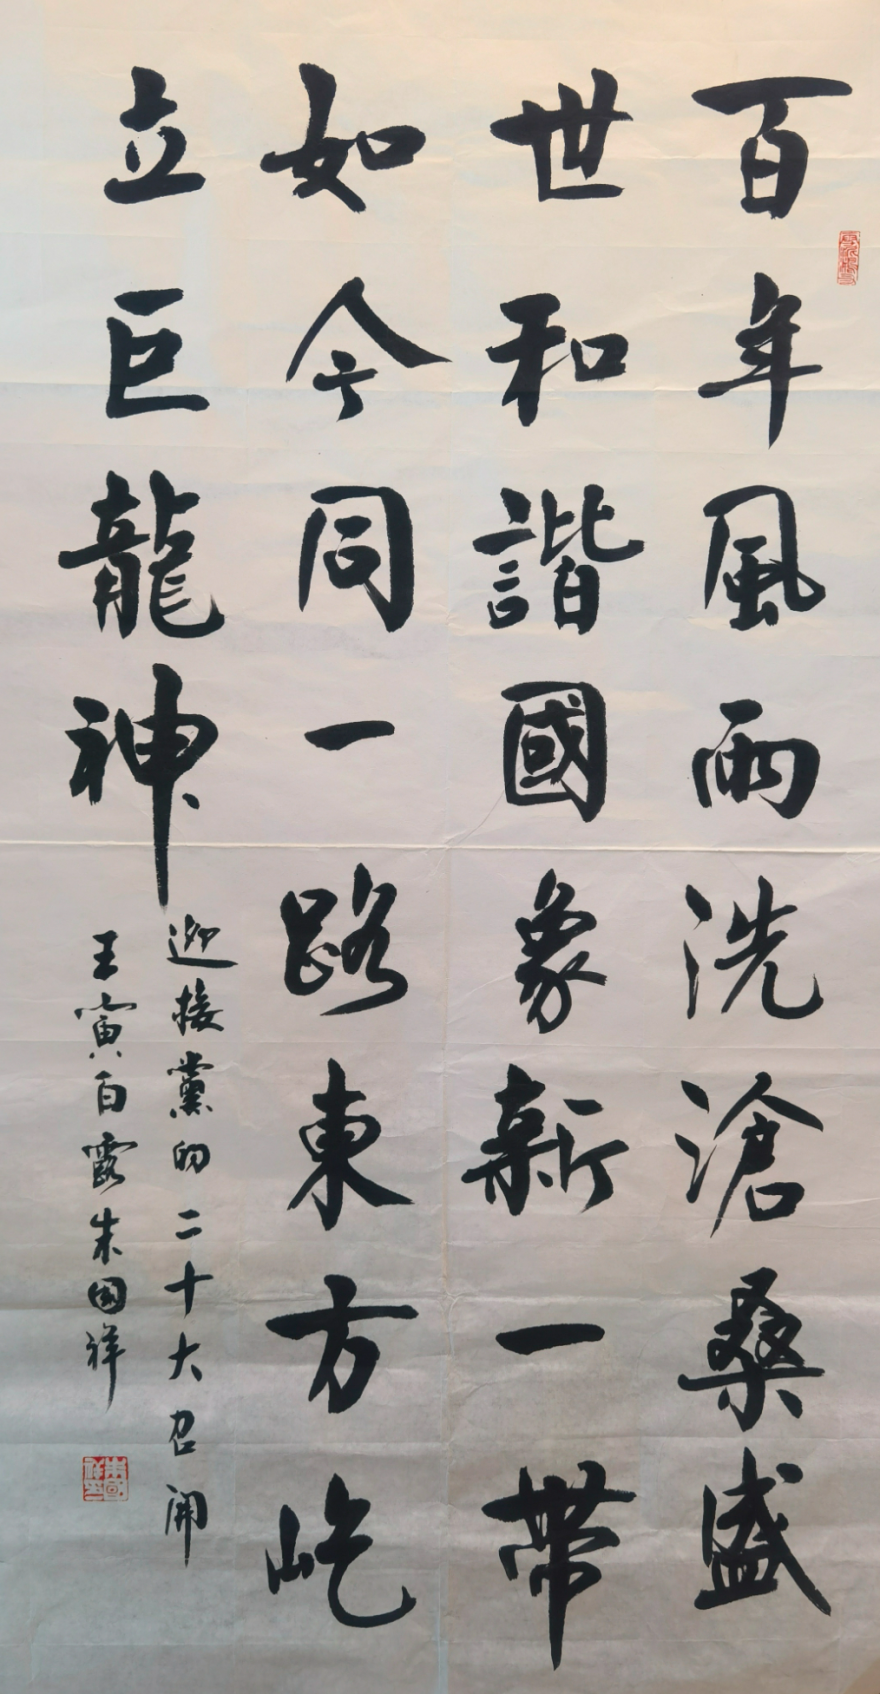 百年風雨洗滄桑盛
世和諧國象新一帶
如今同一路東方屹
立巨龍神
迎接黨的二十大召開
壬寅白露朱國祥